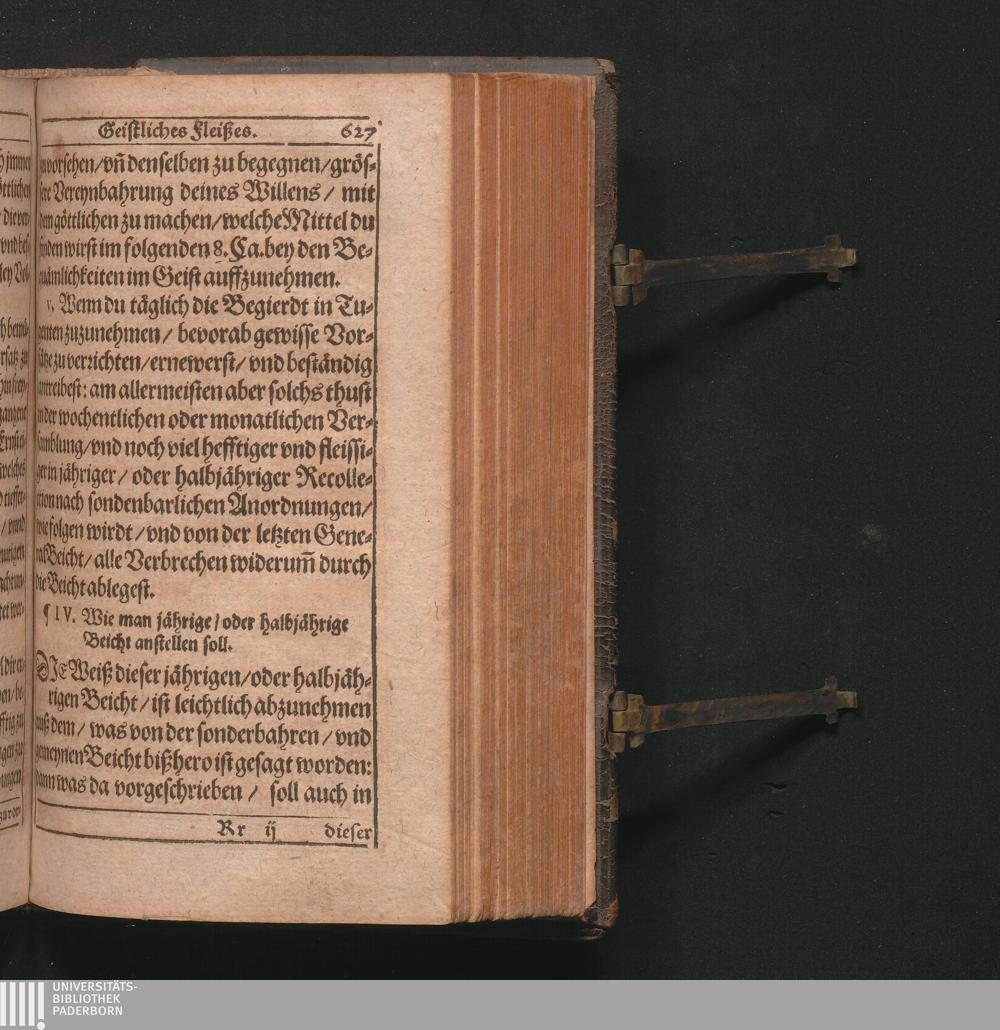 Geistliches Fleißes. 627
zuvorsehen/vñ denselben zu begegnen/grös-
sere Vereynbahrung deines Willens/ mit
dem göttlichen zu machen/welche Mittel du
finden wirst im folgenden 8. Ca. bey den Be-
quämlichkeiten im Geist auffzunehmen.
v. Wenn du täglich die Begierdt in Tu-
genten zuzunehmen/ bevorab gewisse Vor-
sätze zu verzichten/ernewerst/ vnd beständig
antreibest: am allermeisten aber solchs thust
in der wochentlichen oder monatlichen Ver-
samblung/vnd noch viel hefftiger vnd fleissi-
ger in jähriger/ oder halbjähriger Recolle-
ction nach sondenbarlichen Anordnungen/
wie folgen wirdt/vnd von der letzten Gene-
ral Beicht/alle Verbrechen widerum̃ durch
die Beicht ablegest.
¶ IV. Wie man jährige/oder halbjährige
Beicht anstellen soll.
DIe Weiß dieser jährigen/oder halbjäh-
rigen Beicht/ist leichtlich abzunehmen
auß dem/ was von der sonderbahren/vnd
gemeynen Beicht bißhero ist gesagt worden:
dann was da vorgeschrieben/ soll auch in
Rr ij dieser
UNIVERSITÄTS-
BIBLIOTHEK
PADERBORN